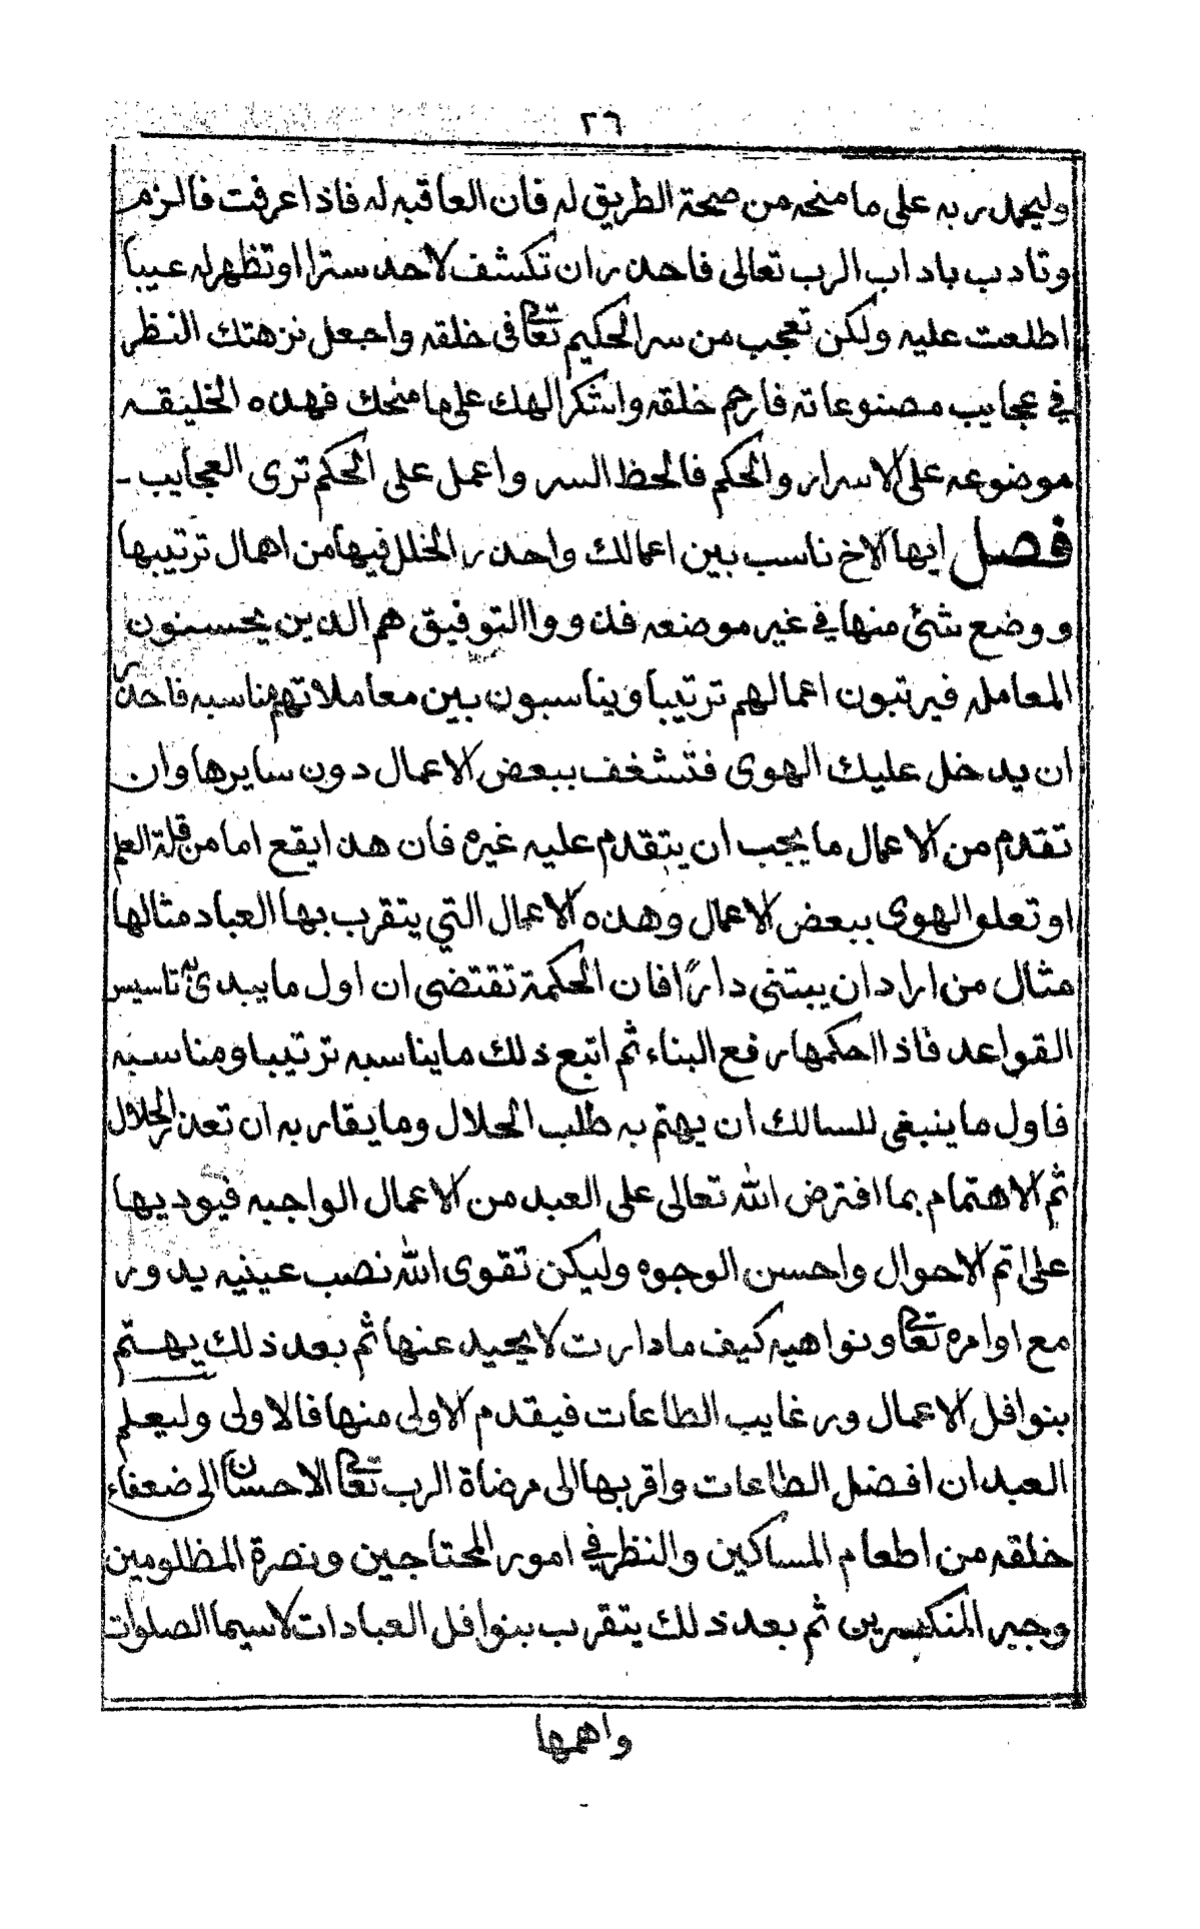 ٢٦
وليحمد ربه على ما منحه من صحة الطريق له فان العاقبه له فاذا عرفت فالزم
وتادب باداب الرب تعالى فاحذر ان تكشف لاحد سترا او تظهر له عيبا
اطلعت عليه ولكن تعجب من سر الحكيم تعالى فى خلقه واجعل نزهتك النظر
في عجايب مصنوعاته فارحم خلقه واشكر الهك على ما منحك فهذه الخليقه
موضوعه على الاسرار والحكم فالحظ السر واعمل على الحكم ترى العجايب
فصل ايها الاخ ناسب بين اعمالك واحذر الخلل فيها من اهمال ترتيبها
ووضع شئ منها في غير موضعه فذووا التوفيق هم الذين يحسنون
المعامله فيرتبون اعمالهم ترتيبا ويناسبون بين معاملاتهم مناسبه فاحذر
ان يدخل عليك الهوى فتشغف ببعض الاعمال دون سايرها وان
تقدم من الاعمال ما يجب ان يتقدم عليه غيره فان هذا يقع اما من قلة العلم
او تعلو الهوى ببعض الاعمال وهذه الاعمال التي يتقرب بها العباد مثالها
مثال من اراد ان يبتنى دارًا فان الحكمة تقتضى ان اول ما يبدئ به تاسيس
القواعد فاذا احكمها رفع البناء ثم اتبع ذلك ما يناسبه ترتيبا ومناسبه
فاول ما ينبغي للسالك ان يهتم به طلب الحلال وما يقاربه ان تعذر الحلال
ثم الاهتمام بما افترض الله تعالى على العبد من الاعمال الواجبه فيوديها
على اتم الاحوال واحسن الوجوه وليكن تقوى الله نصب عينيه يدور
مع اوامره تعالى ونواهيه كيف ما دارت لا يحيد عنها ثم بعد ذلك يهتم
بنوافل الاعمال ورغايب الطاعات فيقدم الاولى منها فالاولى وليعلم
العبد ان افضل الطاعات واقربها الى مرضاة الرب تعالى الاحسان الى ضعفاء
خلقه من اطعام المساكين والنظر في امور المحتاجين ونصرة المظلومين
وجبر المنكسرين ثم بعد ذلك يتقرب بنوافل العبادات لاسيما الصلوات
واهمها